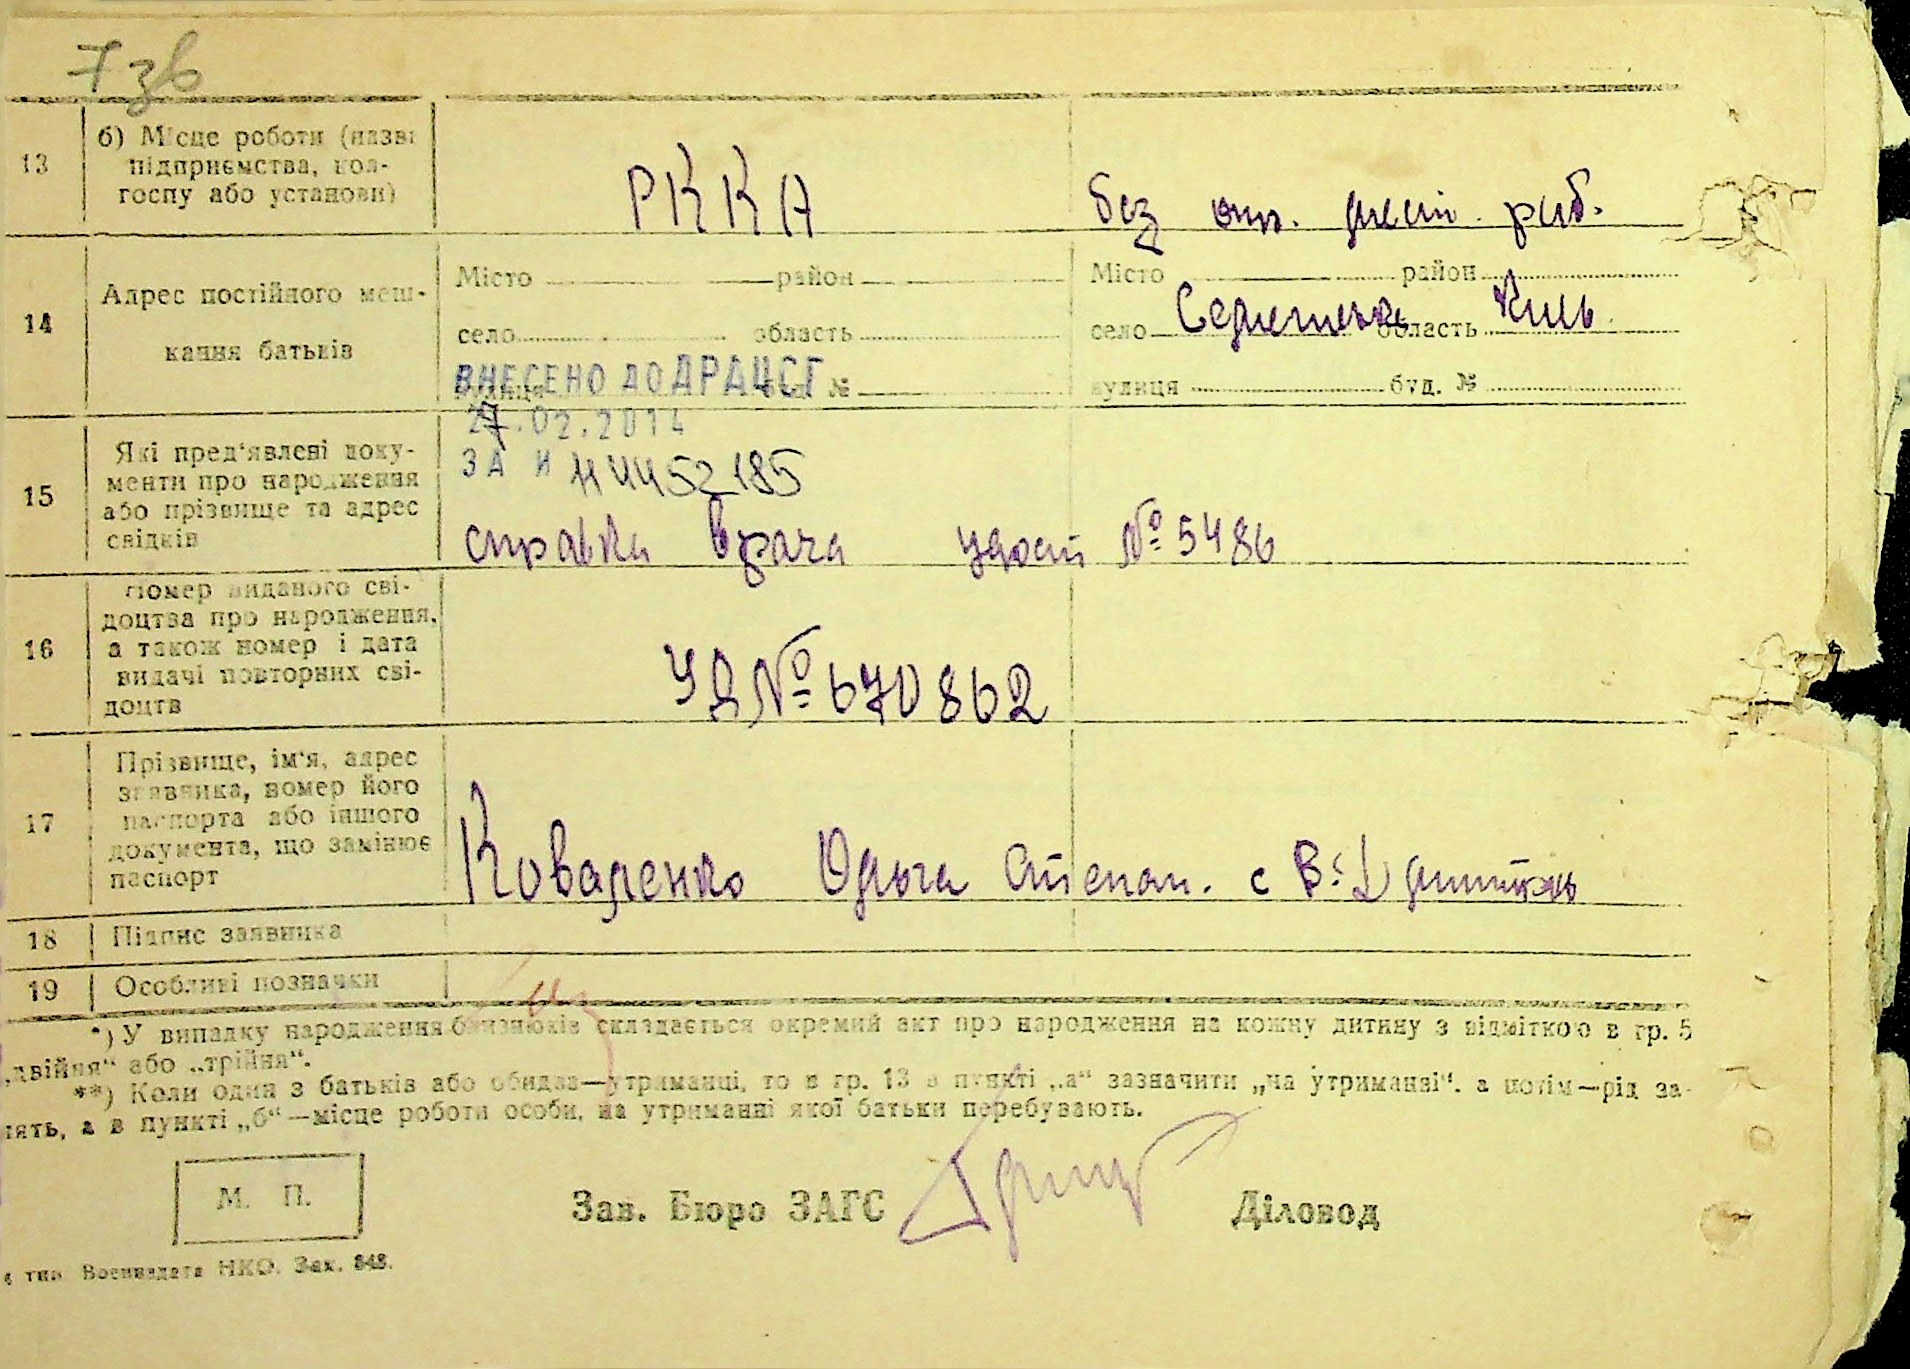 7 зв
13 б) Місце роботи (назва
підприємства, кол-
госпу або установи)
РККА без опр. мест. раб.
14 Адрес постійного меш-
кання батьків
Місто район
село область
вулиця буд. №
ВНЕСЕНО ДО ДРАЦСГ
27.02.2014
ЗА И 44452185
Місто район
село область Київ
вулиця буд. №
15 Які пред'явлені доку-
менти про народження
або прізвище та адрес
свідків
справка врача удост № 5486
16 Номер виданого сві-
доцтва про народження,
а також номер і дата
видачі повторних сві-
доцтв
УД № 670862
17 Прізвище, ім'я, адрес
заявника, номер його
паспорта або іншого
документа, що замінює
паспорт
Коваленко Ольга Степан. с
18 Підпис заявника
19 Особливі позначки
*) У випадку народження близнюків складається окремий акт про народження на кожну дитину з відміткою в гр. 5
„двійня“ або „трійня“.
**) Коли один з батьків або обидва—утриманці, то в гр. 13 в пункті „а“ зазначити „на утриманні“. а потім—рід за-
нять, а в пункті „б“—місце роботи особи, на утриманні якої батьки перебувають.
М. П.
Зав. Бюро ЗАГС Діловод
тип. Воениздата НКО. Зак. 848.